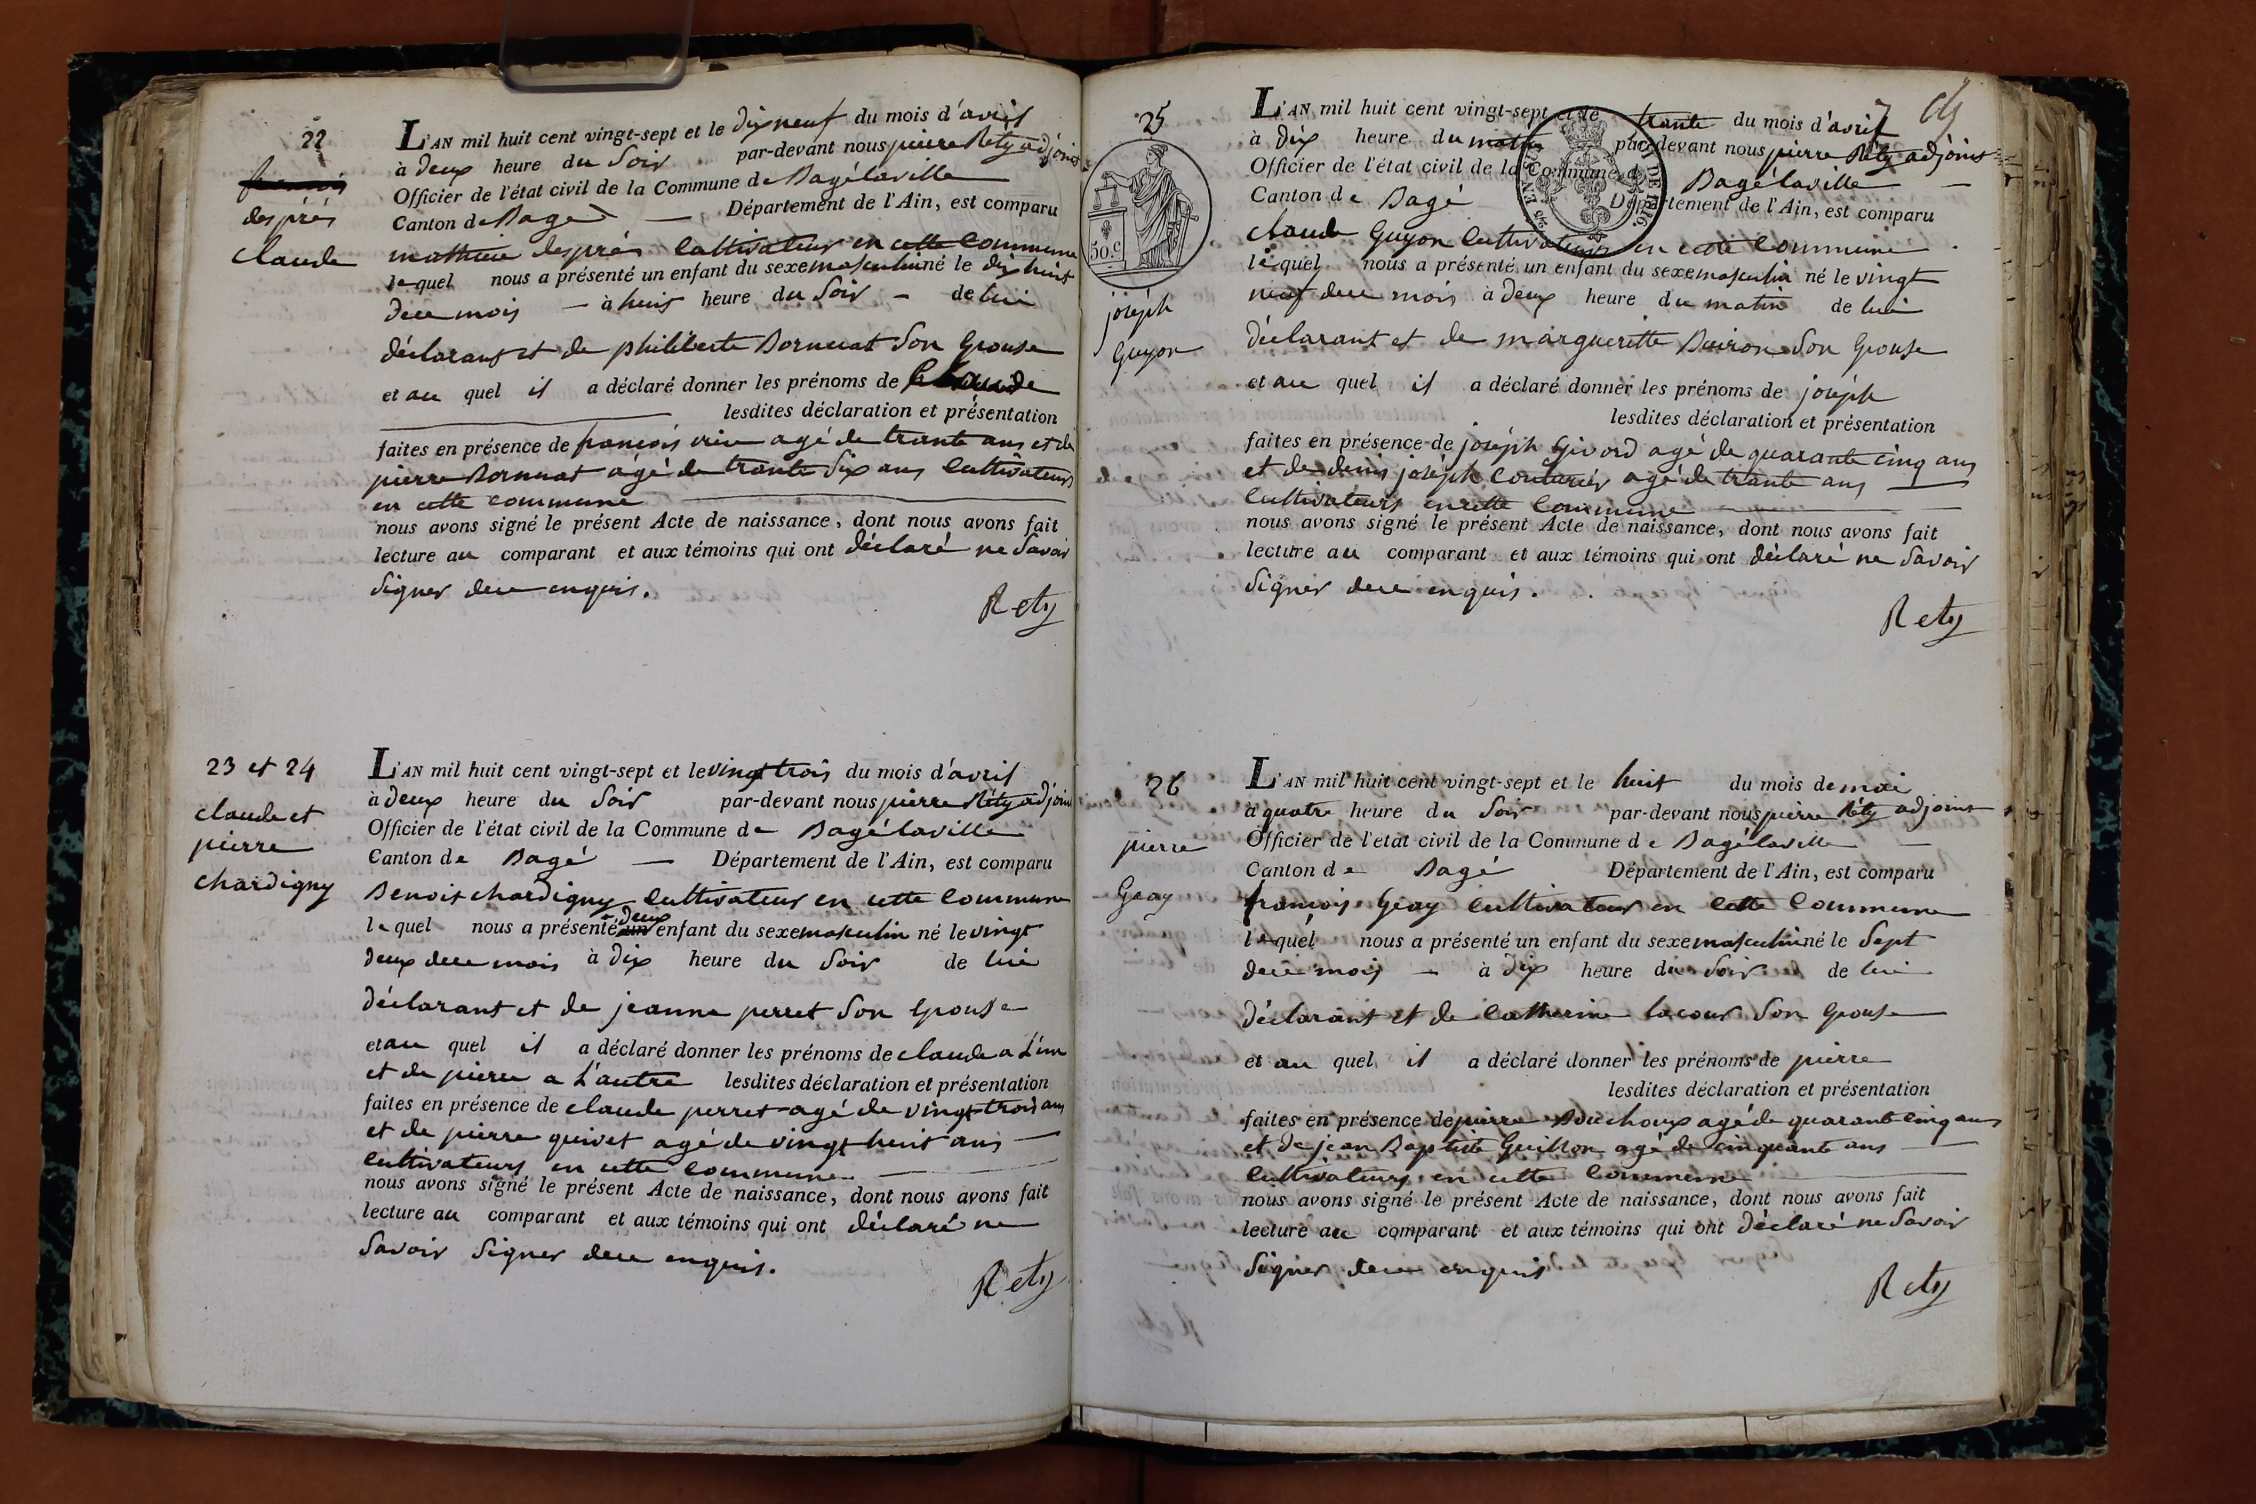 22
françois
després
claude
L'AN mil huit cent vingt-sept et le dix neuf du mois d'avril
à deux heure du Soir par-devant nous pierre Réty adjoint
Officier de l'état civil de la Commune de Bagélaville
Canton de Bagé — Département de l'Ain, est comparu
mathieu després Cultivateur en cette Commune
lequel nous a présenté un enfant du sexe masculin né le dix huit
duu mois — à huit heure du Soir — de lui
déclarant et de philiberte Bornuat Son Epouse
et au quel il a déclaré donner les prénoms de Claude
lesdites déclaration et présentation
faites en présence de françois agé de trante ans et de
pierre Bornuat agé de trante Six ans Cultivateurs
en cette commune
nous avons signé le présent Acte de naissance, dont nous avons fait
lecture au comparant et aux témoins qui ont déclaré ne Savoir
Signer deu enquis.
Rety
23 et 24
claude et
pierre
chardigny
L'AN mil huit cent vingt-sept et le vingt trois du mois d'avril
à deux heure du Soir par-devant nous pierre Réty adjoint
Officier de l'état civil de la Commune de Bagélaville
Canton de Bagé — Département de l'Ain, est comparu
Benoit chardigny Cultivateur en cette Commune
lequel nous a présenté un deux enfant du sexe masculin né le vingt
deux duu mois à dix heure du Soir de lui
déclarant et de jeanne perret Son Epouse
et au quel il a déclaré donner les prénoms de claude a L'un
et de pierre a L'autre lesdites déclaration et présentation
faites en présence de claude perret agé de vingt trois ans
et de pierre quivet agé de vingt huit ans —
Cultivateurs en cette Commune
nous avons signé le présent Acte de naissance, dont nous avons fait
lecture au comparant et aux témoins qui ont déclaré ne
Savoir Signer deu enquis.
Rety
25
50 c
joséph
Guyon
L'AN mil huit cent vingt-sept et le trante du mois d'avril
à dix heure du matin par-devant nous pierre Réty adjoint
Officier de l'état civil de la Commune d Bagélaville —
Canton de Bagé Département de l'Ain, est comparu
claude Guyon Cultivateur en cette Commune
lequel nous a présenté un enfant du sexe masculin né le vingt
neuf duu mois à deux heure du matin de lui
déclarant et de margueritte Buiron Son Epouse
et au quel il a déclaré donner les prénoms de joséph
lesdites déclaration et présentation
faites en présence de joséph Givord agé de quarante cinq ans
et de denis joséph Couturier agé de trante ans —
Cultivateurs en cette Commune
nous avons signé le présent Acte de naissance, dont nous avons fait
lecture au comparant et aux témoins qui ont déclaré ne Savoir
Signer deu enquis.
Rety
26
pierre
Geay
L'AN mil huit cent vingt-sept et le huit du mois de mai
à quatre heure du Soir par-devant nous pierre Réty adjoint
Officier de l'état civil de la Commune de Bagélaville —
Canton de Bagé Département de l'Ain, est comparu
françois Geay Cultivateur en cette Commune
lequel nous a présenté un enfant du sexe masculin né le Sept
duu mois — à dix heure du Soir de lui
déclarant et de Catherine lacour Son Epouse
et au quel il a déclaré donner les prénoms de pierre
lesdites déclaration et présentation
faites en présence de pierre Bouchoux agé de quarante cinq ans
et de jean Baptiste Guillon agé de cinquante ans —
Cultivateurs en cette Commune
nous avons signé le présent Acte de naissance, dont nous avons fait
lecture au comparant et aux témoins qui ont déclaré ne Savoir
Signer deu enquis
Rety